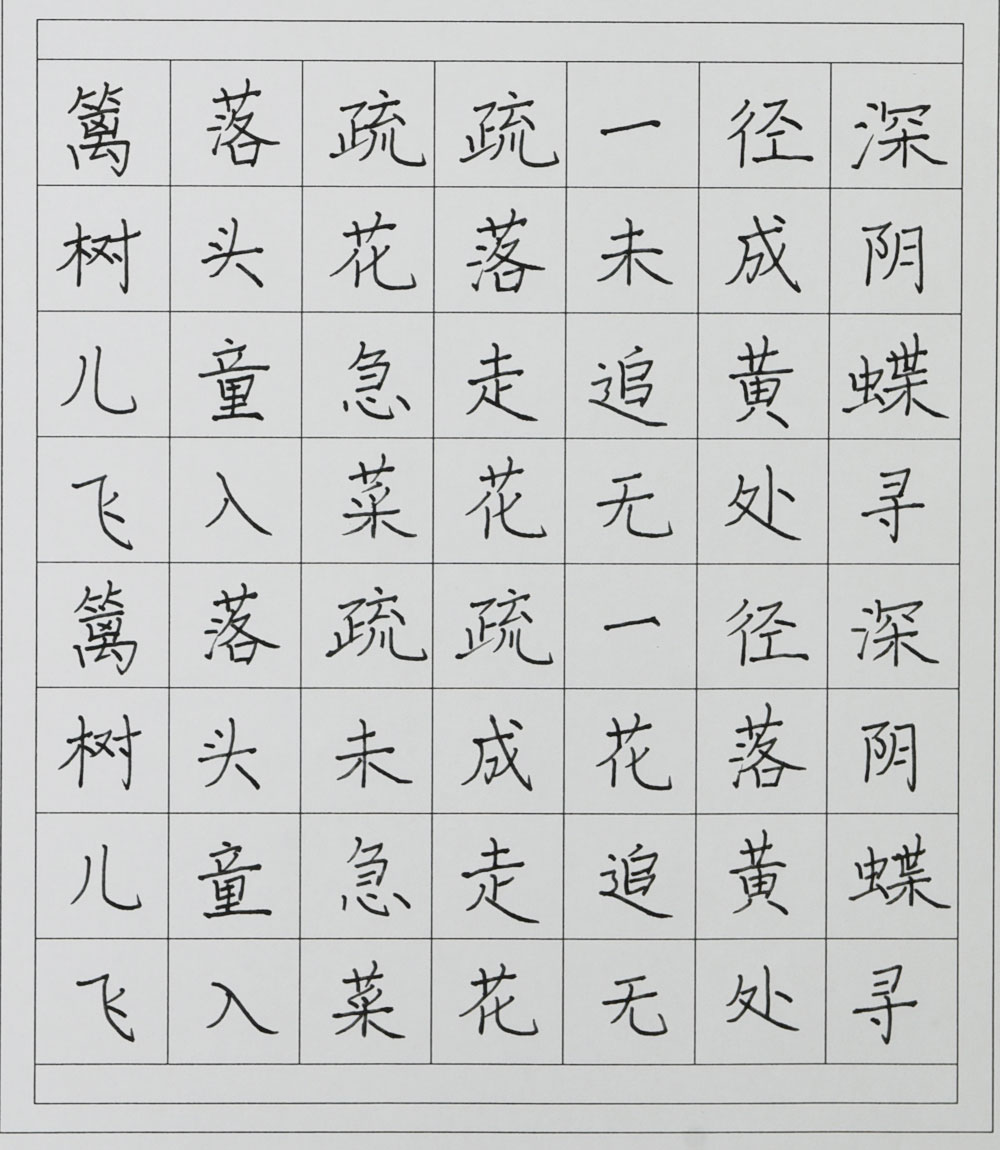 篱落疏疏一径深
树头花落未成阴
儿童急走追黄蝶
飞入菜花无处寻
篱落疏疏一径深
树头未成花落阴
儿童急走追黄蝶
飞入菜花无处寻